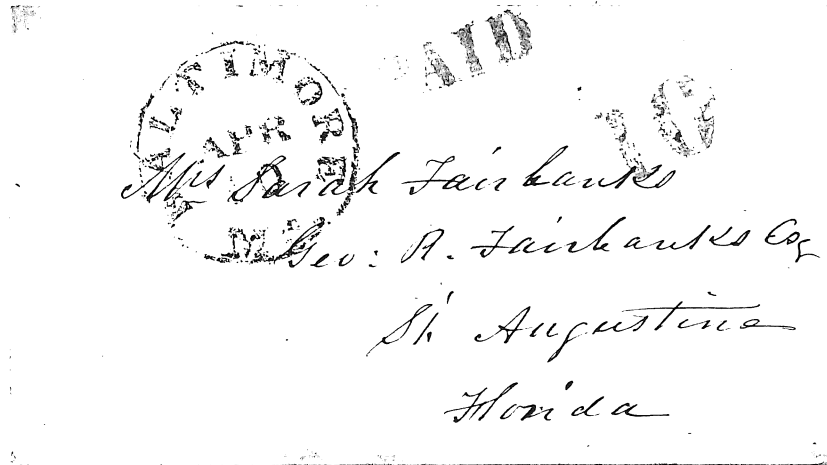 PAID
10
BALTIMORE
APR
Md
Mrs Sarah Fairbanks
Geo: R. Fairbanks Esq
St Augustine
Florida